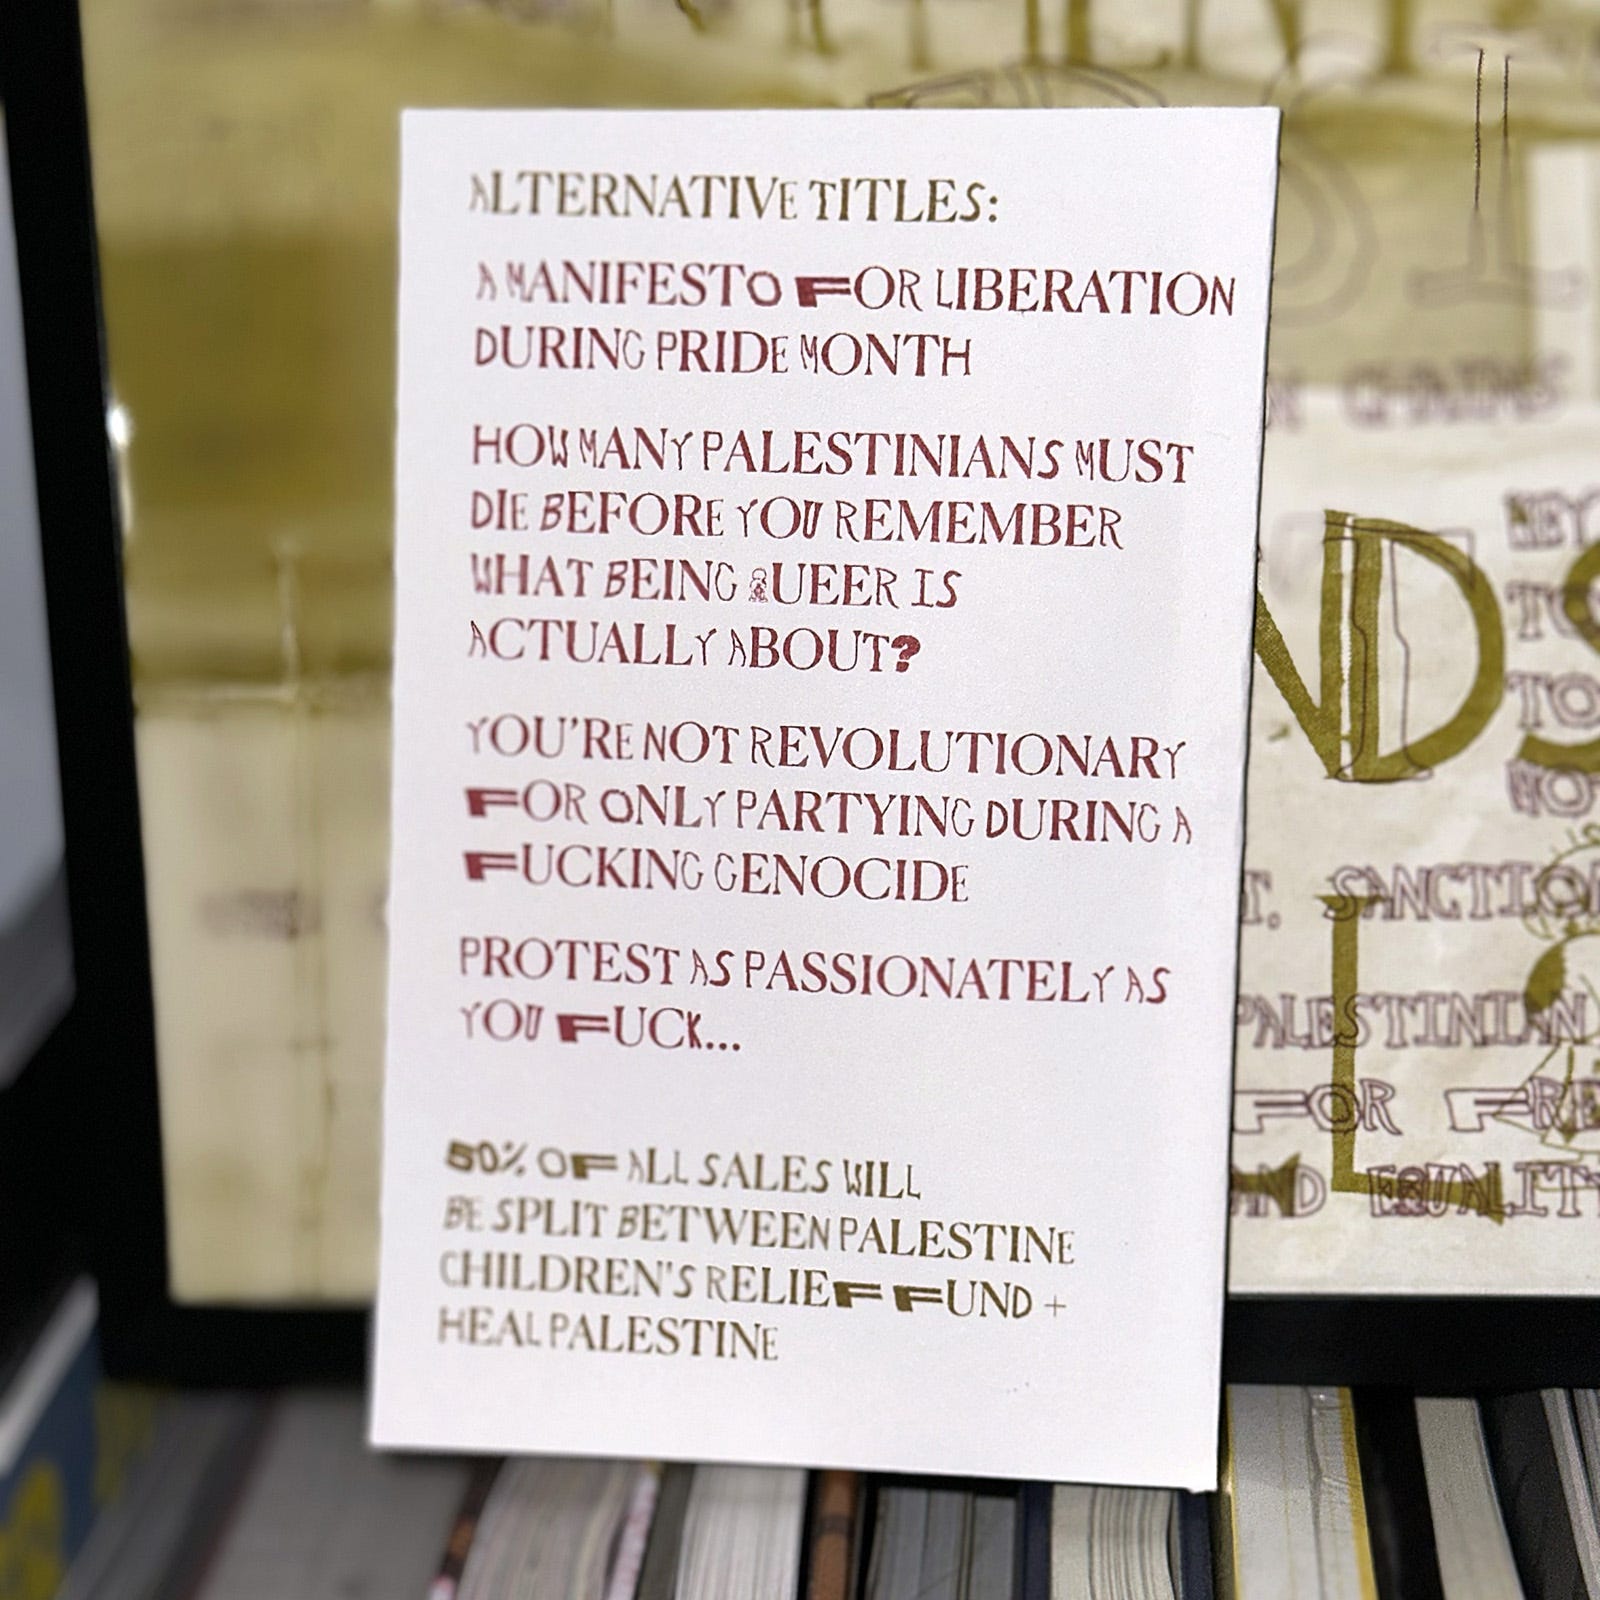 ALTERNATIVE TITLES:
A MANIFESTO FOR LIBERATION
DURING PRIDE MONTH
HOW MANY PALESTINIANS MUST
DIE BEFORE YOU REMEMBER
WHAT BEING QUEER IS
ACTUALLY ABOUT?
YOU'RE NOT REVOLUTIONARY
FOR ONLY PARTYING DURING A
FUCKING GENOCIDE
PROTEST AS PASSIONATELY AS
YOU FUCK...
50% OF ALL SALES WILL
BE SPLIT BETWEEN PALESTINE
CHILDREN'S RELIEF FUND +
HEAL PALESTINE
TO
TO
SANCTION
PALESTINIAN
FOR FRE
AND EQUALITY